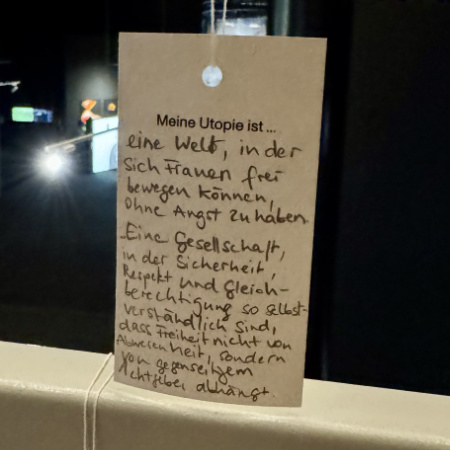 Meine Utopie ist ...
eine Welt, in der
sich Frauen frei
bewegen können,
ohne Angst zu haben.
Eine Gesellschaft,
in der Sicherheit,
Respekt und Gleich-
berechtigung so selbst-
verständlich sind,
dass Freiheit nicht von
Abwesenheit, sondern
von gegenseitigem
abhängt.